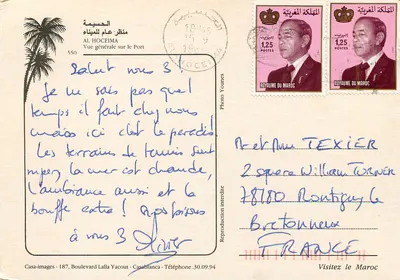 الحسيمة
منظر عام للميناء
AL HOCEIMA
Vue générale sur le Port
550
Salut vous 3!
Je ne sais pas quel
temps il fait chez vous
mais ici c'est le paradis.
Les terrains de tennis sont
super, la mer est chaude,
l'ambiance aussi et la
bouffe extra! Gros bisous
à vous 3
Olivier
Casa-images - 187, Boulevard Lalla Yacout - Casablanca - Téléphone : 30.09.94
Photo Younes
Reproduction interdite
HOCEIMA
المملكة المغربية
1,25
POSTES
ROYAUME DU MAROC
المملكة المغربية
1,25
POSTES
ROYAUME DU MAROC
Mr et Mme TEXIER
2 square William TURNER
78180 Montigny le
Bretonneux
FRANCE
Visitez le Maroc